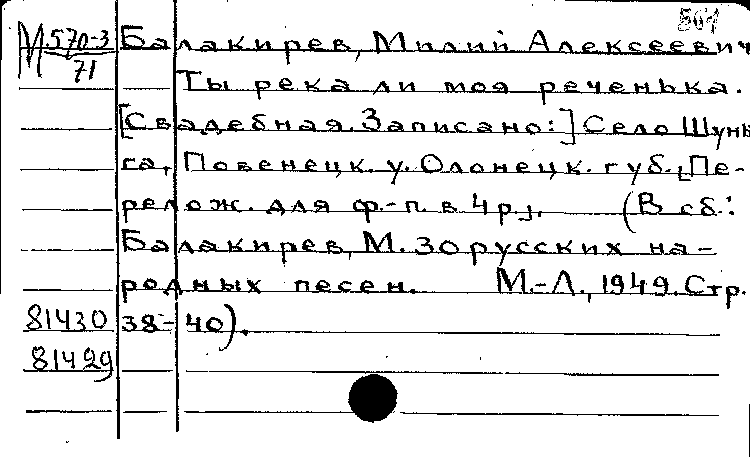 501
М 570-3 Балакирев, Милий Алексеевич
71 Ты река ли моя реченька.
[Свадебная. Записано:] Село Шунь
га, Повенецк. у. Олонецк. губ. [Пе-
релож. для ф.-п. в 4 р.]. (В сб.:
Балакирев, М. 30 русских на-
родных песен. М.-Л., 1949. Стр.
81430 38-40).
81429